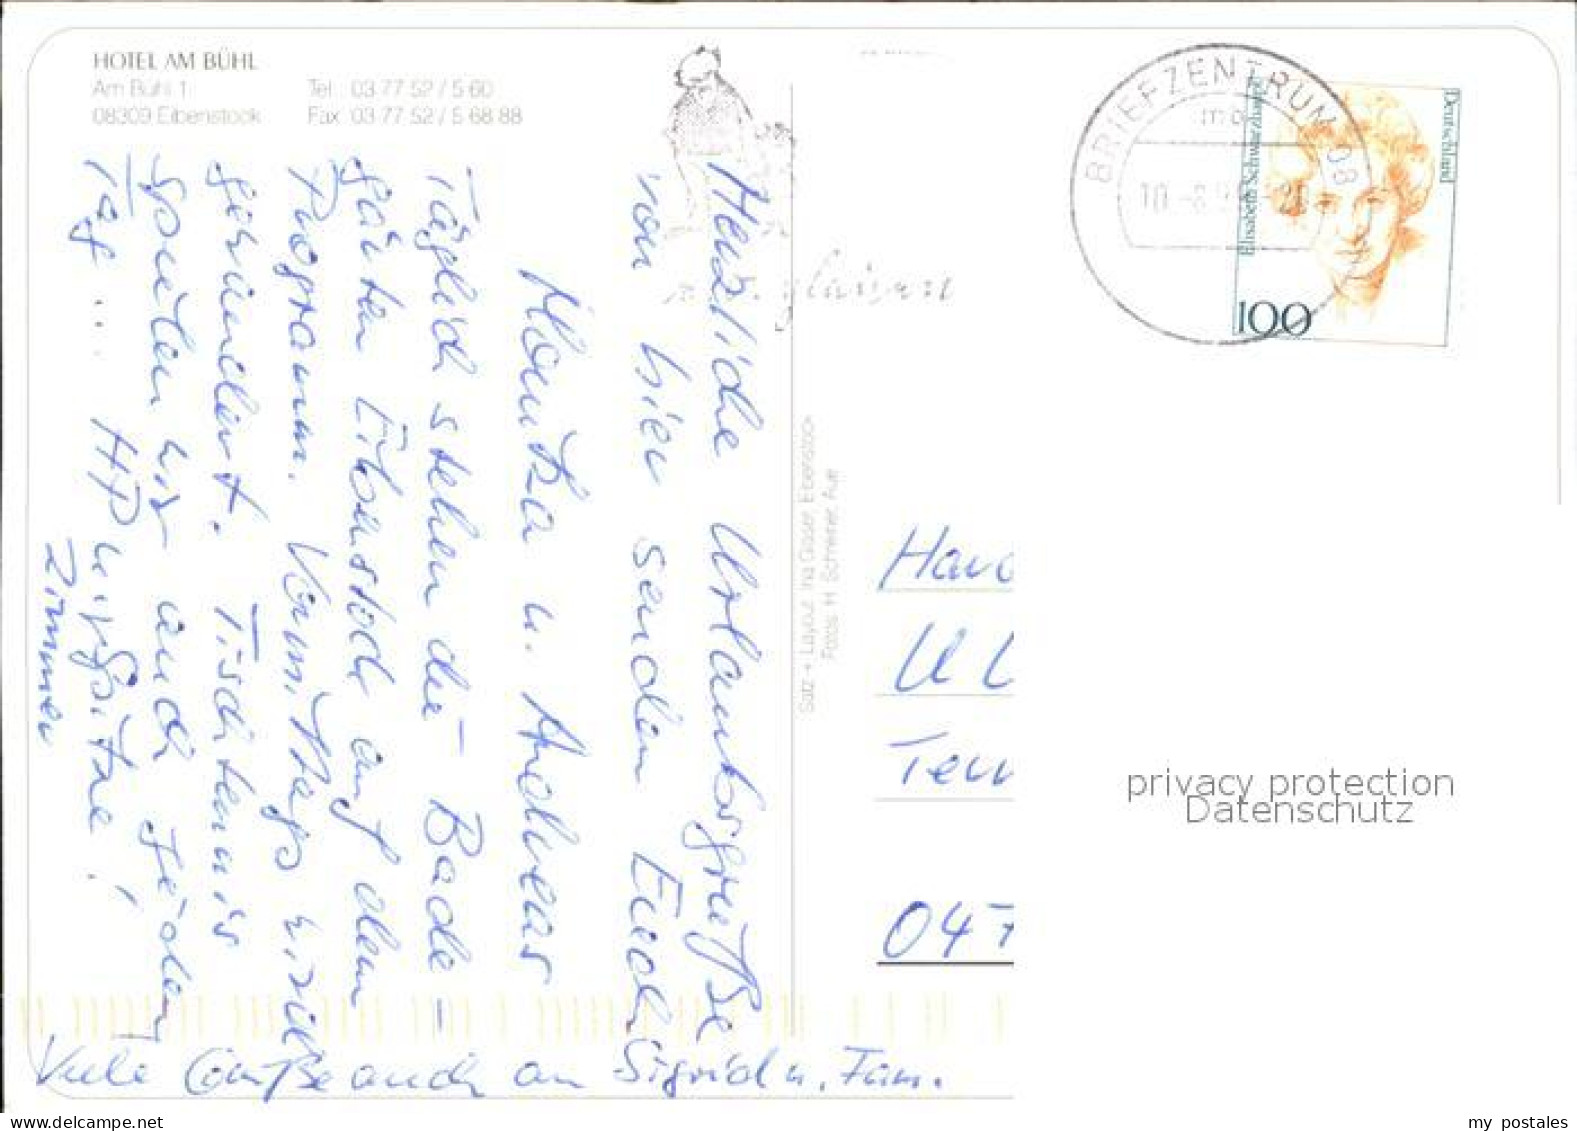 HOTEL AM BÜHL
Am Bühl 1
08309 Eibenstock
Tel.: 03 77 52 / 5 60
Fax: 03 77 52 / 5 68 88
Herzliche Urlaubsgrüße
von hier senden Euch
Monika u. Andreas
Täglich stehen die Bade-
gärten Eibenstock auf dem
Programm. Vormittags wird
gewandert. Tischtennis
spielen wir auch jeden
Tag ... HP u. spitze!
Zimmer
Viele Grüße auch an Sigrid u. Fam.
Satz + Layout: Ina Gläser, Eibenstock
Fotos: H. Schreiner, Aue
BRIEFZENTRUM 08
10.-8.9
Deutschland
Elisabeth Schwarzhaupt
100
Ten
04
privacy protection
Datenschutz
my postales